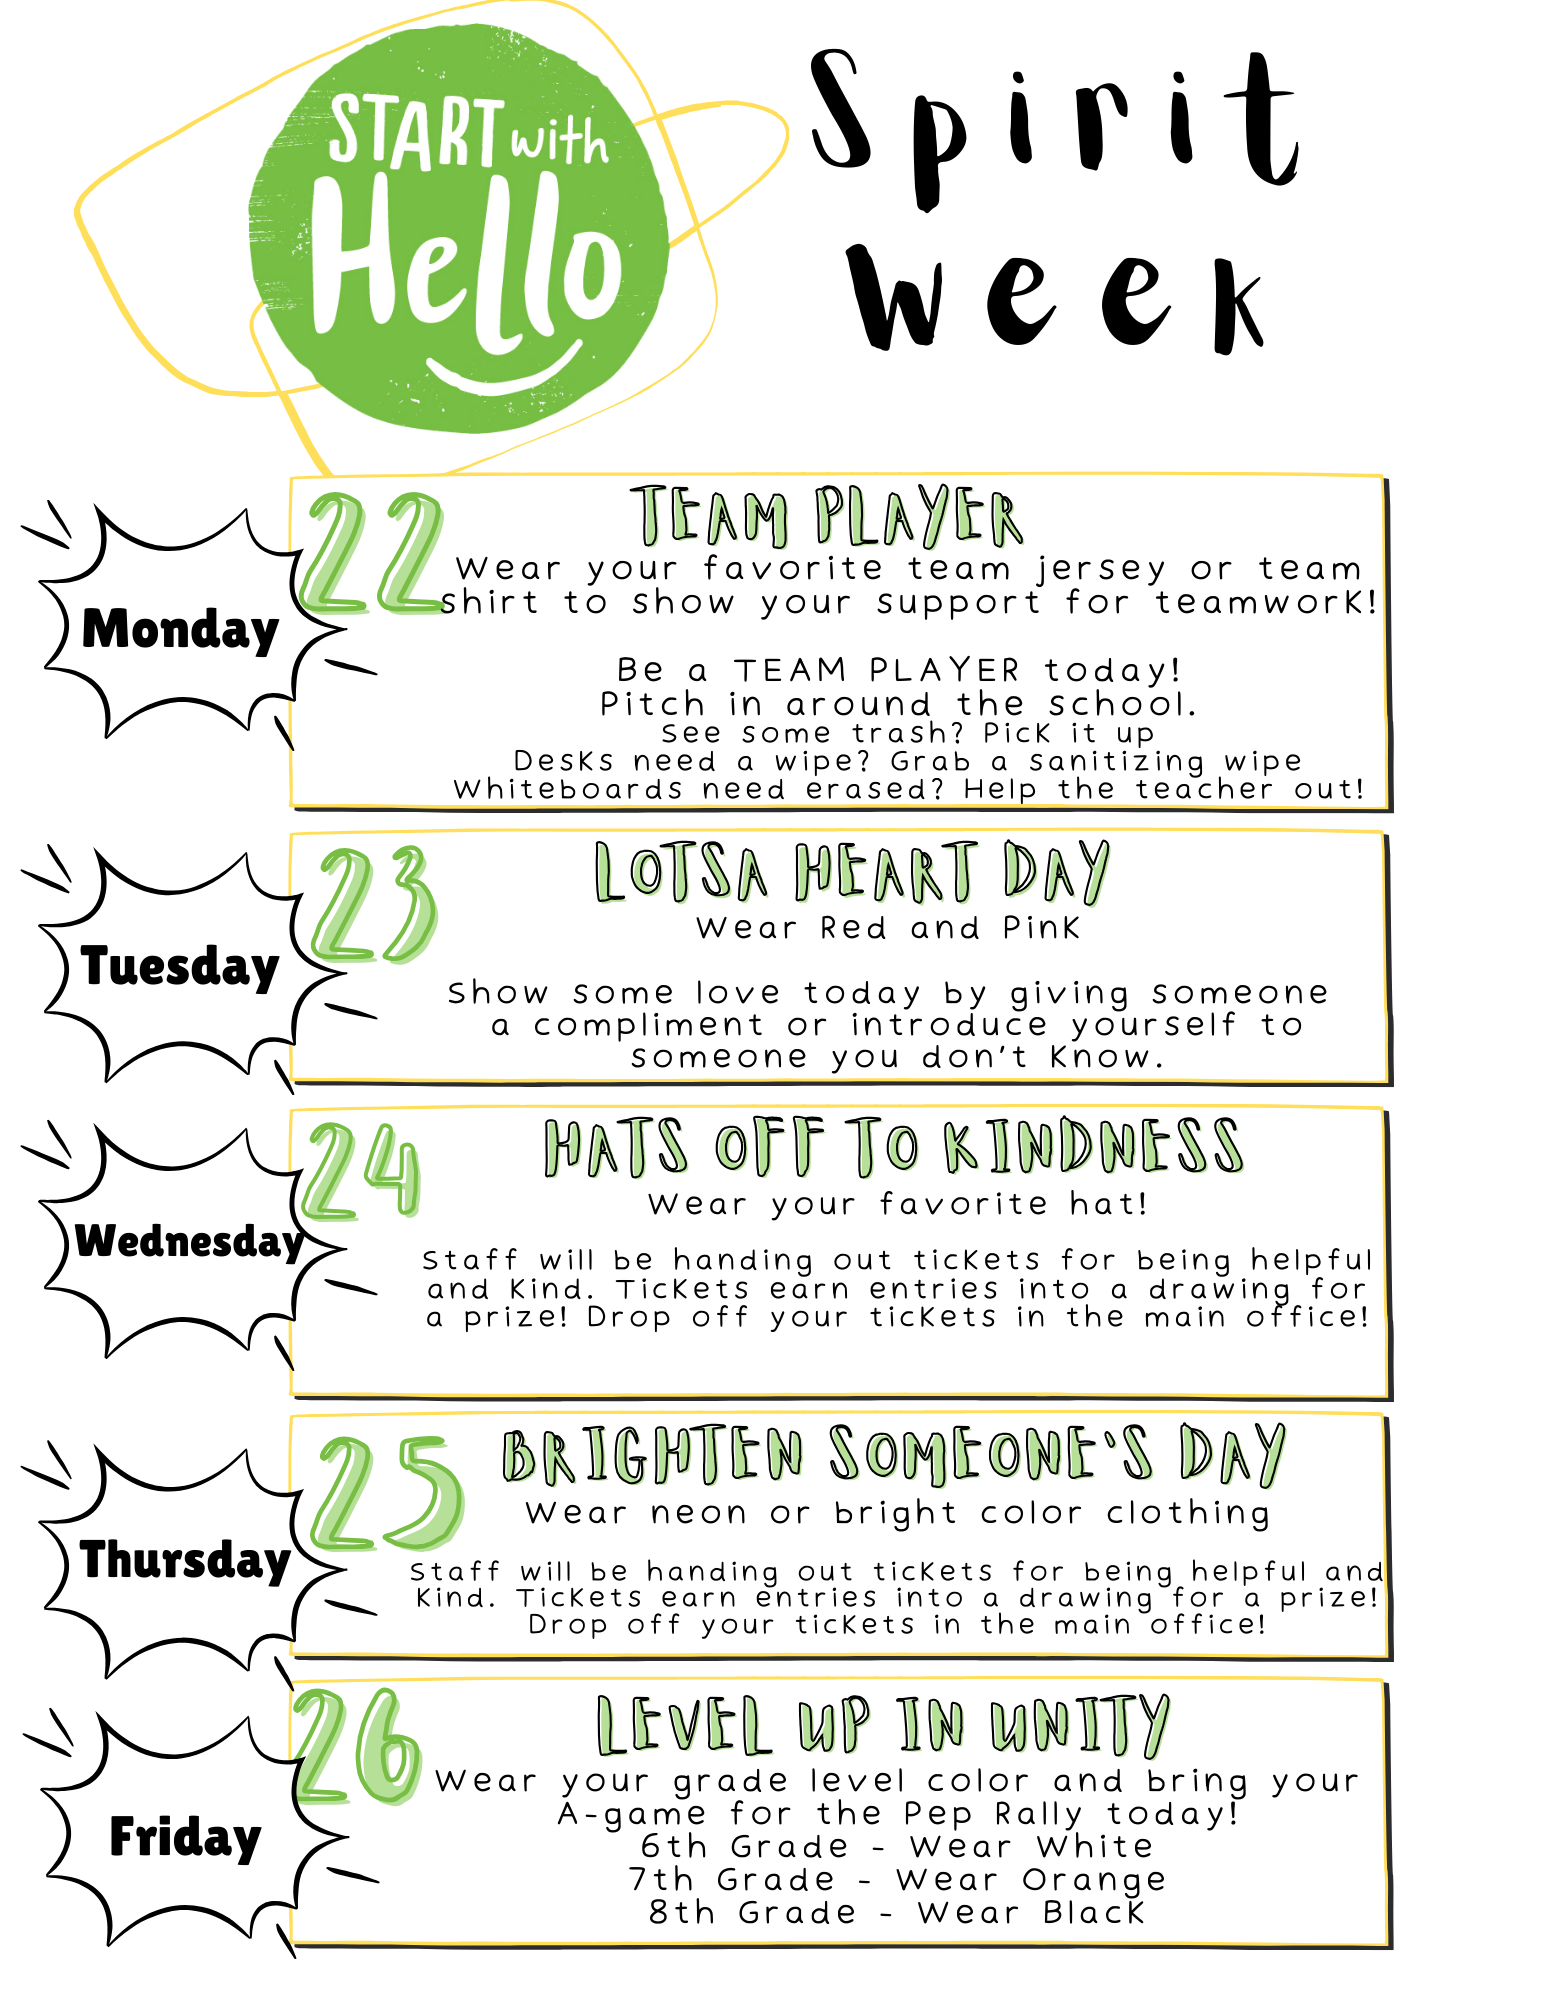 START with
Hello
Spirit
Week
Monday
22
TEAM PLAYER
Wear your favorite team jersey or team
shirt to show your support for teamwork!
Be a TEAM PLAYER today!
Pitch in around the school.
See some trash? Pick it up
Desks need a wipe? Grab a sanitizing wipe
Whiteboards need erased? Help the teacher out!
Tuesday
23
LOTSA HEART DAY
Wear Red and Pink
Show some love today by giving someone
a compliment or introduce yourself to
someone you don't know.
Wednesday
24
HATS OFF TO KINDNESS
Wear your favorite hat!
Staff will be handing out tickets for being helpful
and kind. Tickets earn entries into a drawing for
a prize! Drop off your tickets in the main office!
Thursday
25
BRIGHTEN SOMEONE'S DAY
Wear neon or bright color clothing
Staff will be handing out tickets for being helpful and
kind. Tickets earn entries into a drawing for a prize!
Drop off your tickets in the main office!
Friday
26
LEVEL UP IN UNITY
Wear your grade level color and bring your
A-game for the Pep Rally today!
6th Grade - Wear White
7th Grade - Wear Orange
8th Grade - Wear Black